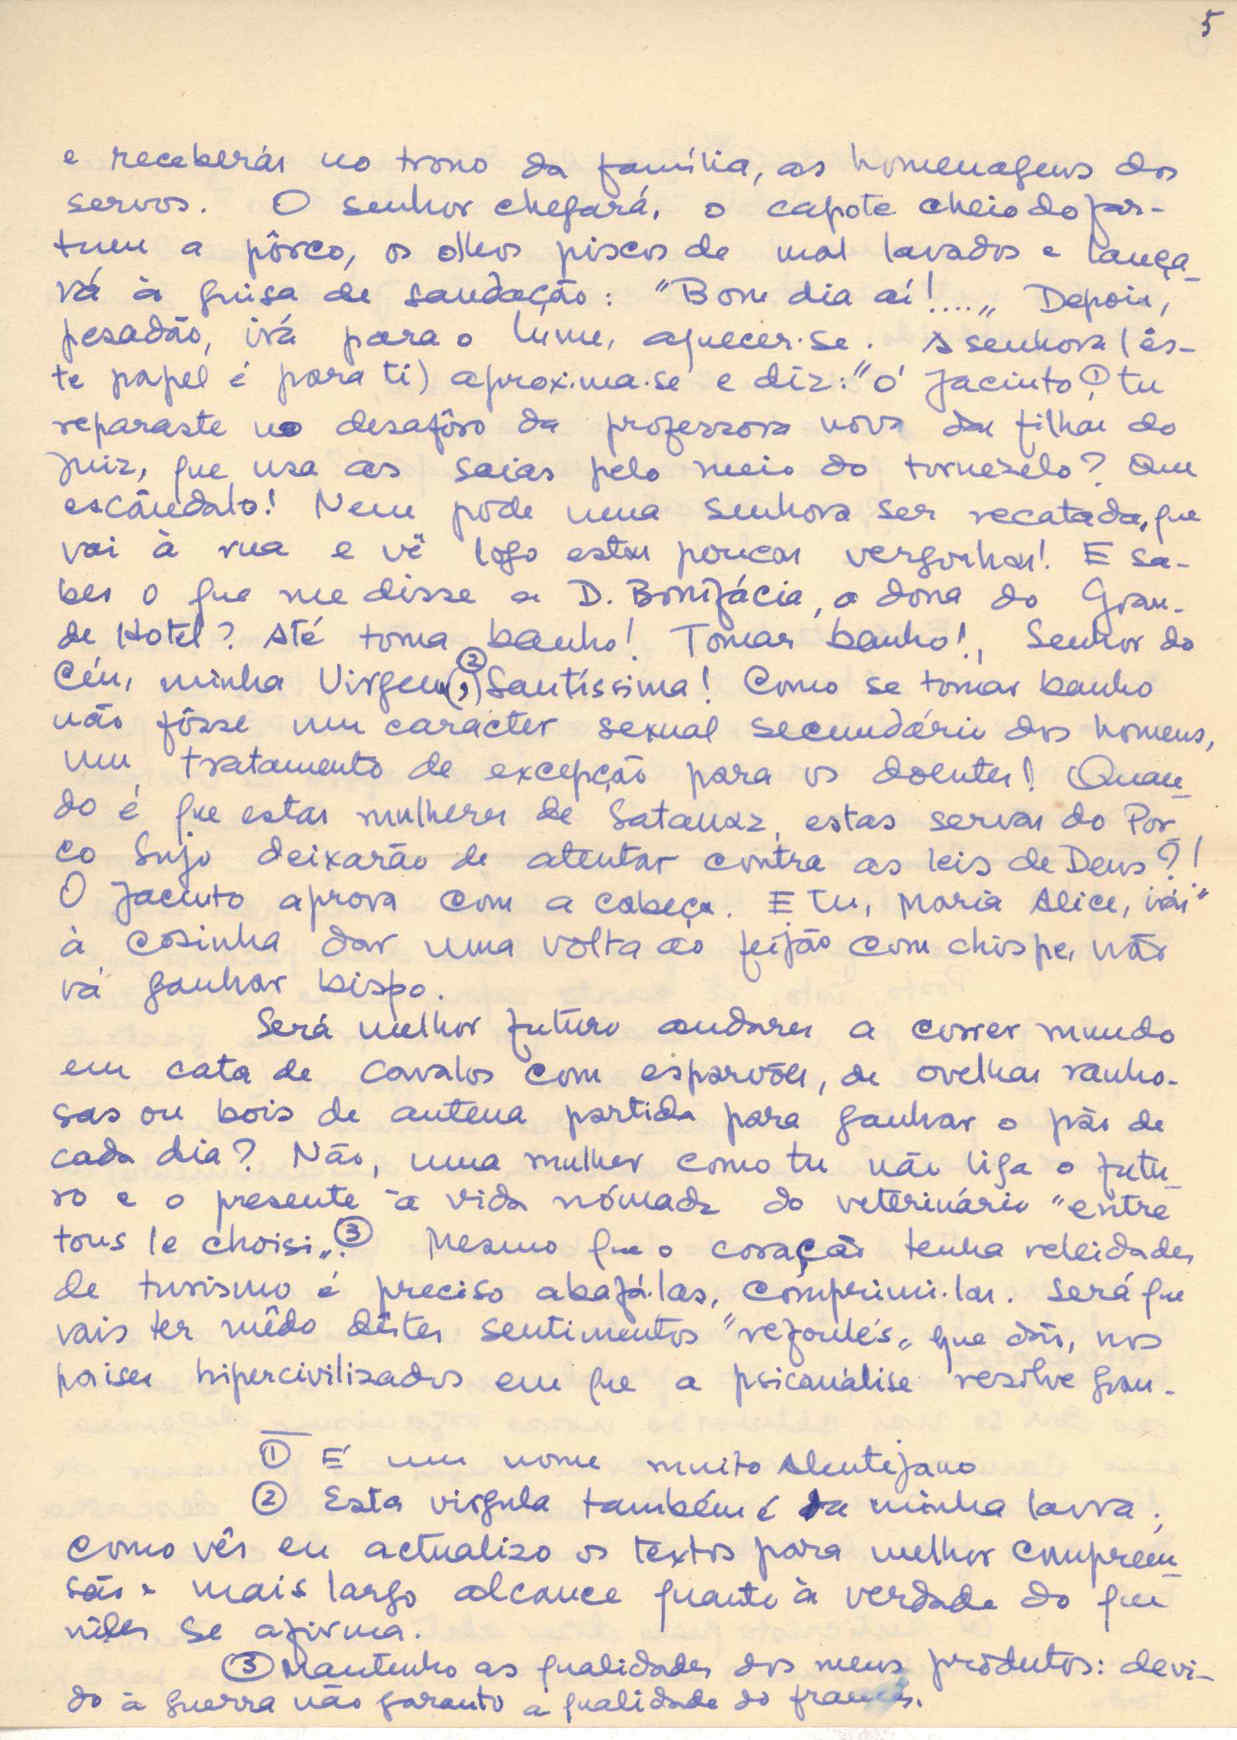 5
e receberás no trono da família, as homenagens dos
servos. O senhor chegará, o capote cheio do per-
tum a pôrco, os olhos piscos de mal lavados e lança-
rá à guisa de saudação: "Bom dia aí!...." Depois,
pesadão, irá para o lume, aquecer-se. A senhora (ês-
te papel é para ti) aproxima-se e diz: "Ó Jacinto ①, tu
reparaste no desafôro da professora nova das filhas do
juiz, que usa as saias pelo meio do tornezelo? Que
escândalo! Nem pode uma senhora ser recatada, que
vai à rua e vê logo estas poucas vergonhas! E sa-
bes o que me disse a D. Bonifácia, a dona do Gran-
de Hotel? Até toma banho! Tomar banho!, Senhor do
Céu, minha Virgem (,)② Santíssima! Como se tomar banho
não fôsse um carácter sexual secundário dos homens,
um tratamento de excepção para os doentes! Quan-
do é que estas mulheres de Satanaz, estas servas do Por-
co Sujo deixarão de atentar contra as leis de Deus?!
O Jacinto aprova com a cabeça. E tu, Maria Alice, irás
à cosinha dar uma volta ao feijão com chispe, não
vá ganhar bispo.
Será melhor futuro andares a correr mundo
em cata de cavalos com esparvões, de ovelhas ranho-
sas ou bois de antena partida para ganhar o pão de
cada dia? Não, uma mulher como tu não liga o futu-
ro e o presente à vida nómada do veterinário "entre
tous le choisi". ③ Mesmo que o coração tenha veleidades
de turismo é preciso abafá-las, comprimi-las. Será que
vais ter mêdo dêstes sentimentos "refoulés" que dão, nos
países hipercivilisados em que a psicanálise resolve gran-
① É um nome muito Alentejano
② Esta virgula também é da minha lavra;
como vês eu actualizo os textos para melhor compreen-
são e mais largo alcance quanto à verdade do que
nêles se afirma.
③ Mantenho as qualidades dos meus produtos: devi-
do à guerra não garanto a qualidade do francês.